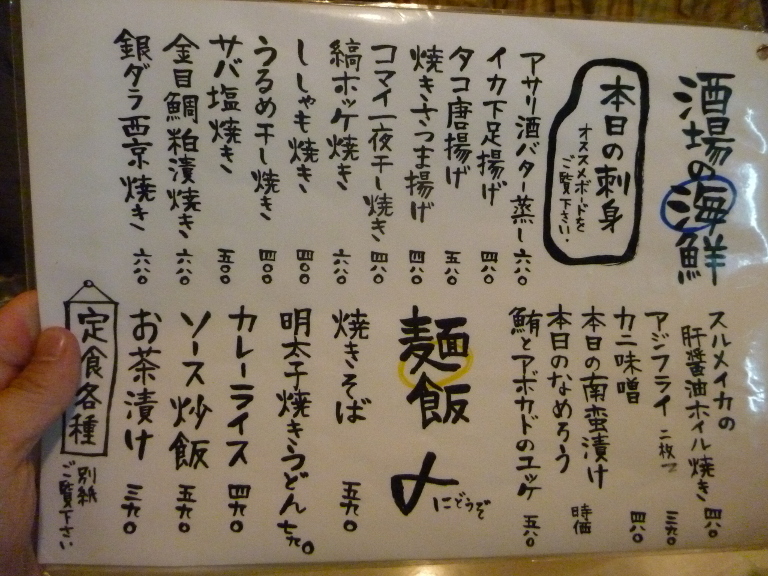 酒場の海鮮
本日の刺身
オススメボードを
ご覧下さい。
アサリ酒バター蒸し 六八〇
イカ下足揚げ 四八〇
タコ唐揚げ 五八〇
焼きさつま揚げ 四八〇
コマイ一夜干し焼き 四八〇
縞ホッケ焼き 六八〇
ししゃも焼き 四〇〇
うるめ干し焼き 四〇〇
サバ塩焼き 五〇〇
金目鯛粕漬焼き 六八〇
銀ダラ西京焼き 六八〇
スルメイカの
肝醤油ホイル焼き 四八〇
アジフライ 二枚で 三九〇
カニ味噌 四八〇
本日の南蛮漬け
本日のなめろう 時価
鮪とアボカドのユッケ 五八〇
麺飯
〆にどうぞ
焼きそば 五九〇
明太子焼きうどん 七九〇。
カレーライス 四九〇
ソース炒飯 五九〇
お茶漬け 三九〇
定食各種
別紙
ご覧下さい